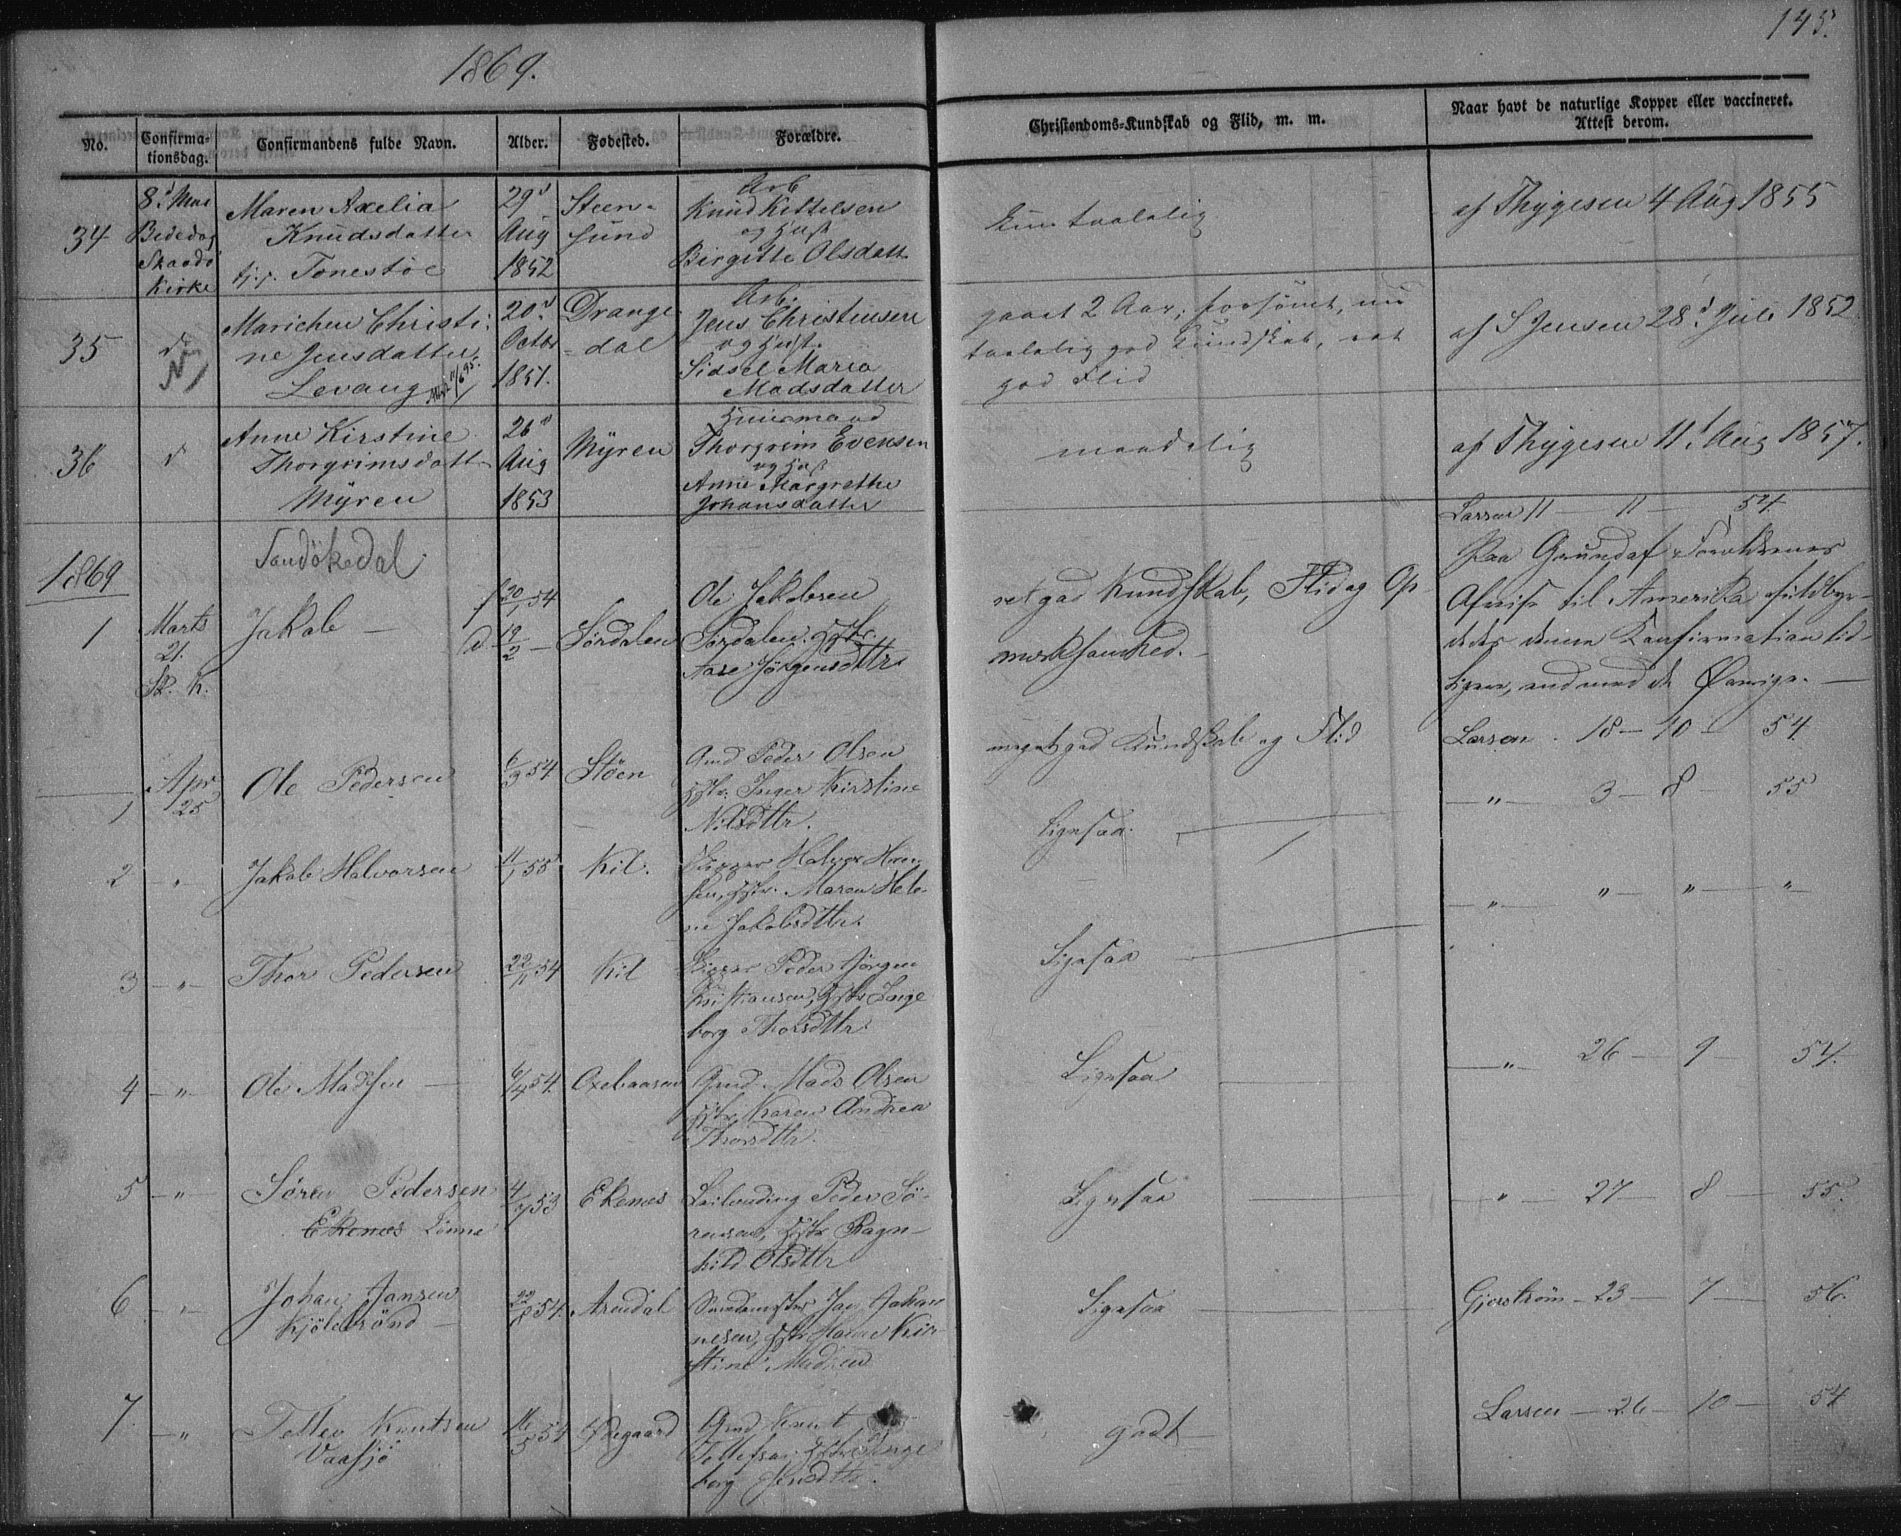 1869.
145.
No.
Confirma-
tionsdag.
Confirmandens fulde Navn.
Alder.
Fødested.
Forældre.
Christendoms-Kundskab og Flid, m. m.
Naar havt de naturlige Kopper eller vaccineret.
Attest derom.
34
Bededag
Skaadø
Kirke
Maren Axelia
Knudsdatter
Tonestøe
29d
Aug
1852
Steen-
sund
Arb
Knud Kittelsen
og Hust
Birgitte Olsdatt
kun taalelig
af Thygesen 4 Aug 1855
35
Marichen Christi-
ne Jensdatter
Levang
20d
Octbr
1851.
Drange
-dal
Arb.
Jens Christensen
og Hust.
Sidsel Maria
Madsdatter
gaaet 2 Aar, forsømt, nu
taalelig god Kundskab, ret
god Flid
af S Jensen 28d Juli 1852
36
Anne Kirstine
Thorgrimsdatt
Myren
26d
Aug
1853
Myren
Huusmand
Thorgrim Evensen
og Hust
Anne Margrethe
Johansdatter
maadelig
af Thygesen 11d Aug 1857.
1869
Sandøkedal
1
Marts
21.
Sk. K.
Jakob —
f 20/1 54
d 19/2 —
Sørdalen
Ole Jakobsen
Sørdalen. Hstr.
Aase Jørgensdttr
ret god Kundskab, Flid og Op-
mærksomhed. —
Larsen 11 — 11 — 54
Paa Grund af Forældrenes
Afreise til Amerika
denne Konfirmation tid-
ligere, end med de Øvrige. —
1
Apr
25
Ole Pedersen
6/3 54
Støen
Gmd Peder Olsen
Hstr. Inger Kirstine
Nilsdttr.
meget god Kundskab og Flid
Larsen 18 — 10 — 54
2 — " —
Jakob Halvorsen
11/1 55
Kil.
Skipper Halvor Han-
sen, Hstr. Maren Hele-
ne Jakobsdttr.
Ligesaa.
— " — 3 — 8 — 55
3 — " —
Thor Pedersen
22/1 54
Kil
Skipper Peder Jørgen
Kristiansen, Hstr Inge
borg Thorsdttr.
Ligesaa
— " — " — " — "
4 — " —
Ole Madsen —
6/4 54.
Oxebaasen
Gmd. Mads Olsen
Hstr. Karen Andrea
Thorsdttr.
Ligesaa
— " — 26 — 9 — 54.
5 — " —
Søren Pedersen
Ekenæs Lønne
4/7 53
Ekenæs
Leilending Peder Sø-
rensen, Hstr Ragn-
hild Olsdttr
Ligesaa
" — 27 — 8 — 55.
6 — " —
Johan Jansen
Kjølebrønd —
22/8 54.
Arendal
Jan Johan
nesen, Hstr Hanne Kir-
stine Madsen
Ligesaa
Gjerström — 23 — 7 — 56.
7. — " —
Tellev Knutsen
Vaasjø
16/5 54
Ødegaard
Gmd Knut
Tellefsen, Hstr Inge
borg
godt —
Larsen — 26 — 10 — 54